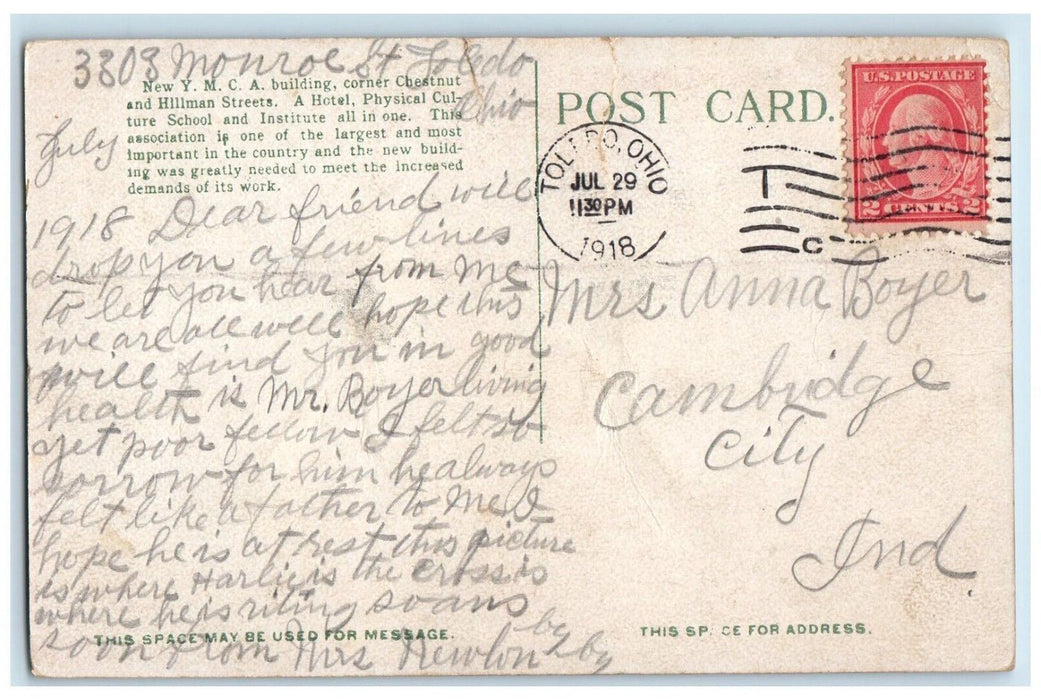 3303 Monroe St Toledo
Ohio
New Y. M. C. A. building, corner Chestnut
and Hillman Streets. A Hotel, Physical Cul-
ture School and Institute all in one. This
association is one of the largest and most
important in the country and the new build-
ing was greatly needed to meet the increased
demands of its work.
July
1918 Dear friend will
drop you a few lines
to let you hear from me
we are all well hope this
will find you in good
health is Mr. Boyer living
yet poor fellow I felt so
sorrow for him he always
felt like a father to me I
hope he is at rest this picture
is where Harlie is the cross is
where he is riting so ans
soon from Mrs Newlon
by by
THIS SPACE MAY BE USED FOR MESSAGE.
POST CARD.
TOLEDO, OHIO
JUL 29
11 30 PM
1918
T
C
U.S. POSTAGE
2 CENTS 2
Mrs Anna Boyer
Cambridge
City
Ind
THIS SPACE FOR ADDRESS.